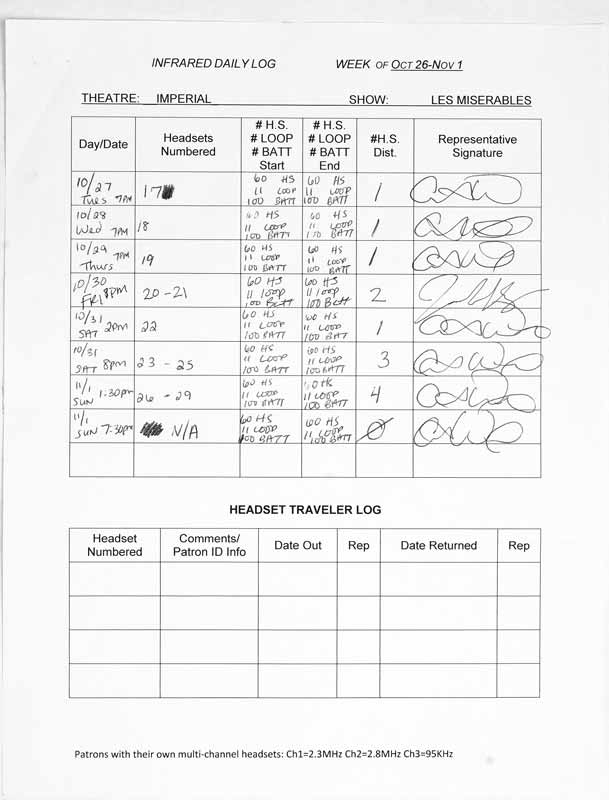 INFRARED DAILY LOG WEEK OF OCT 26-NOV 1
THEATRE: IMPERIAL SHOW: LES MISERABLES
Day/Date Headsets Numbered # H.S. # LOOP # BATT Start # H.S. # LOOP # BATT End #H.S. Dist. Representative Signature
10/27 Tues 7PM 17 60 HS 11 LOOP 100 BATT 60 HS 11 LOOP 100 BATT 1
10/28 Wed 7PM 18 60 HS 11 LOOP 100 BATT 60 HS 11 LOOP 100 BATT 1
10/29 Thurs 7PM 19 60 HS 11 LOOP 100 BATT 60 HS 11 LOOP 100 BATT 1
10/30 FRI 8PM 20-21 60 HS 11 loop 100 Batt 60 HS 11 loop 100 Batt 2
10/31 SAT 2PM 22 60 HS 11 LOOP 100 BATT 60 HS 11 LOOP 100 BATT 1
10/31 SAT 8PM 23 - 25 60 HS 11 LOOP 100 BATT 60 HS 11 LOOP 100 BATT 3
11/1 SUN 1:30pm 26 - 29 60 HS 11 LOOP 100 BATT 60 HS 11 LOOP 100 BATT 4
11/1 SUN 7:30pm N/A 60 HS 11 LOOP 100 BATT 60 HS 11 LOOP 100 BATT 0
HEADSET TRAVELER LOG
Headset Numbered Comments/ Patron ID Info Date Out Rep Date Returned Rep
Patrons with their own multi-channel headsets: Ch1=2.3MHz Ch2=2.8MHz Ch3=95KHz